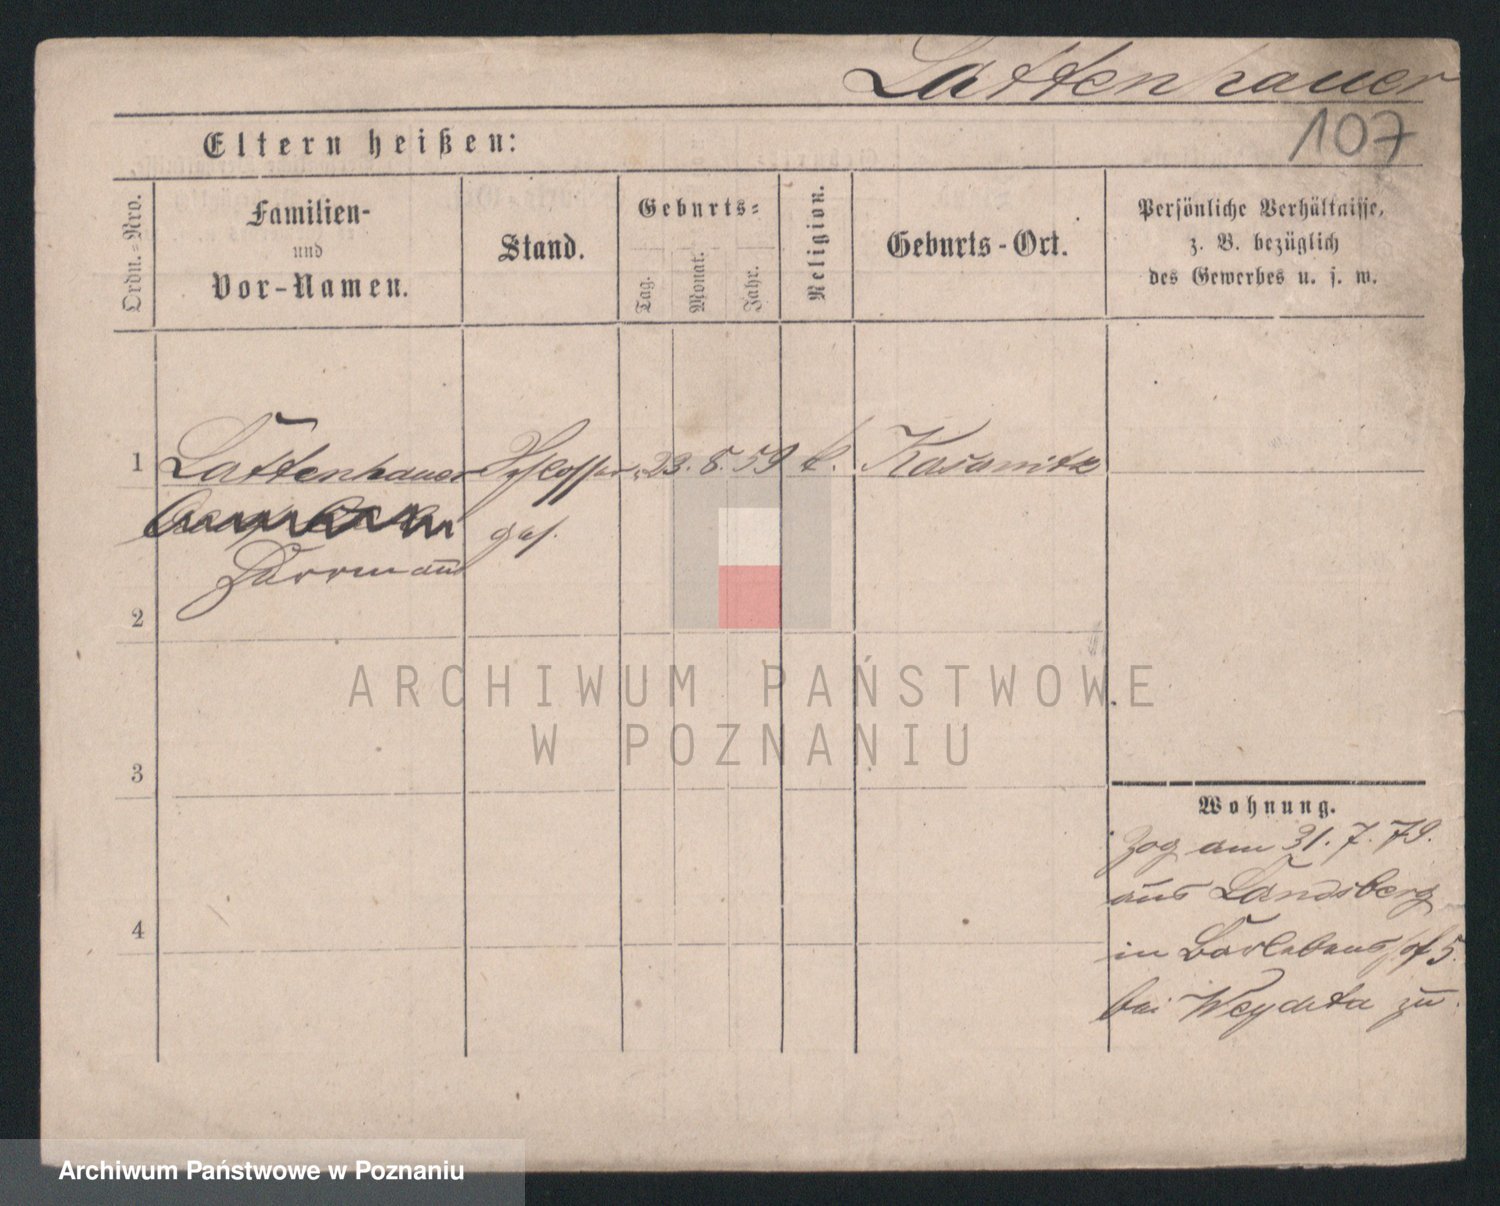 Lattenhauer
107
Eltern heißen:
Ordn.=Nro.
Familien-
und
Vor-Namen.
Stand.
Geburts=
Tag.
Monat.
Jahr.
Religion.
Geburts-Ort.
Persönliche Verhältnisse,
z. B. bezüglich
des Gewerbes u. s. w.
1 Lattenhauer Schlosser 23. 8. 59 k.
ges.
Herrmann
2
3
4
Wohnung.
zog am 31. 7. 79.
aus Landsberg
in 5.
bei zu.
ARCHIWUM PAŃSTWOWE
W POZNANIU
Archiwum Państwowe w Poznaniu